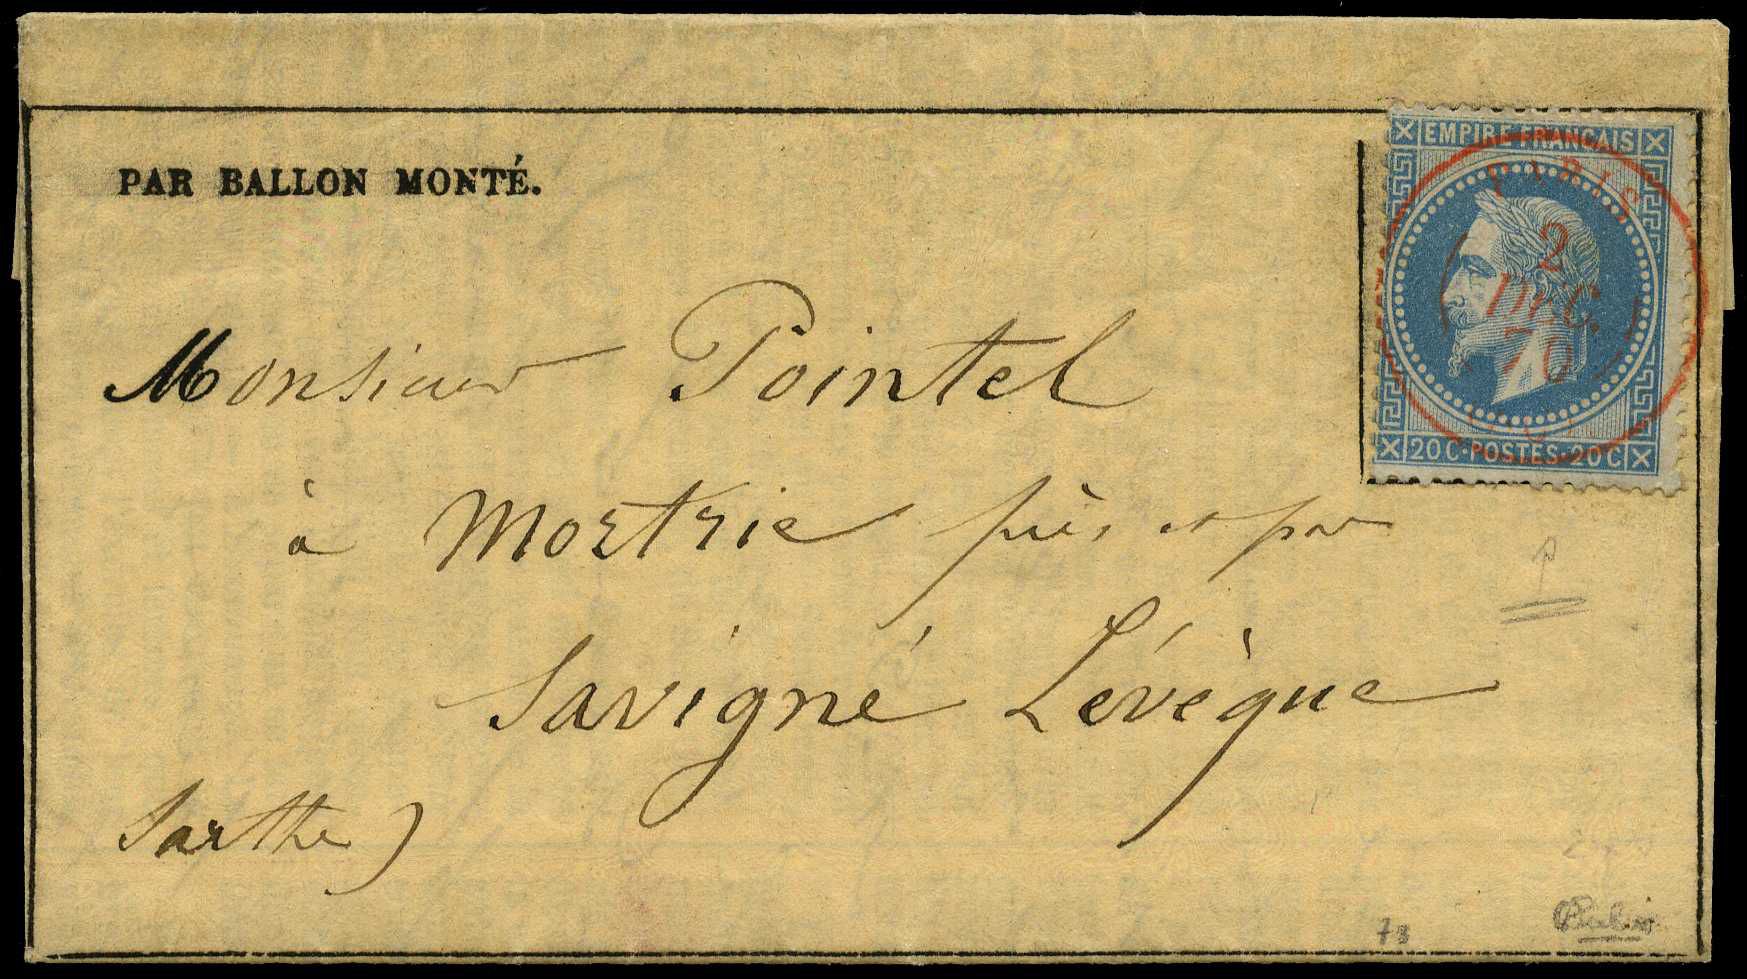 PAR BALLON MONTÉ.
EMPIRE FRANCAIS
PARIS
2
DEC.
70
20 C · POSTES · 20 C
Monsieur Pointel
à Mortrie près et par
Savigné Lévèque
Sarthe)
73